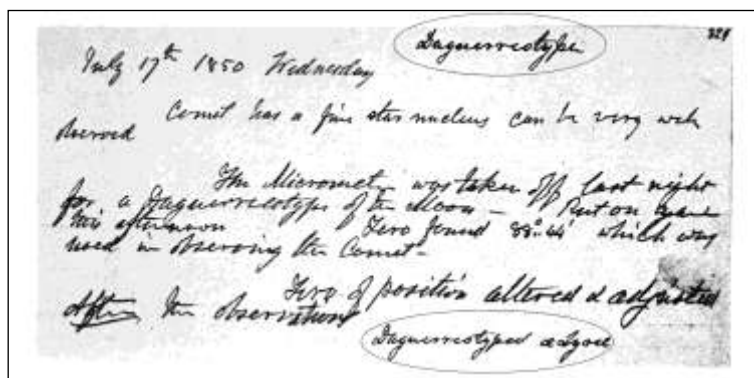 Daguerreotype 329
July 17th 1850 Wednesday
Comet has a fine star nucleus can be very well
observed
The Micrometer was taken off last night
for a Daguerreotype of the Moon – Put on again
this afternoon Zero found 88° 44' which was
used in observing the Comet–
Zero of position altered & adjusted
After the observations
Daguerreotyped α Lyrae